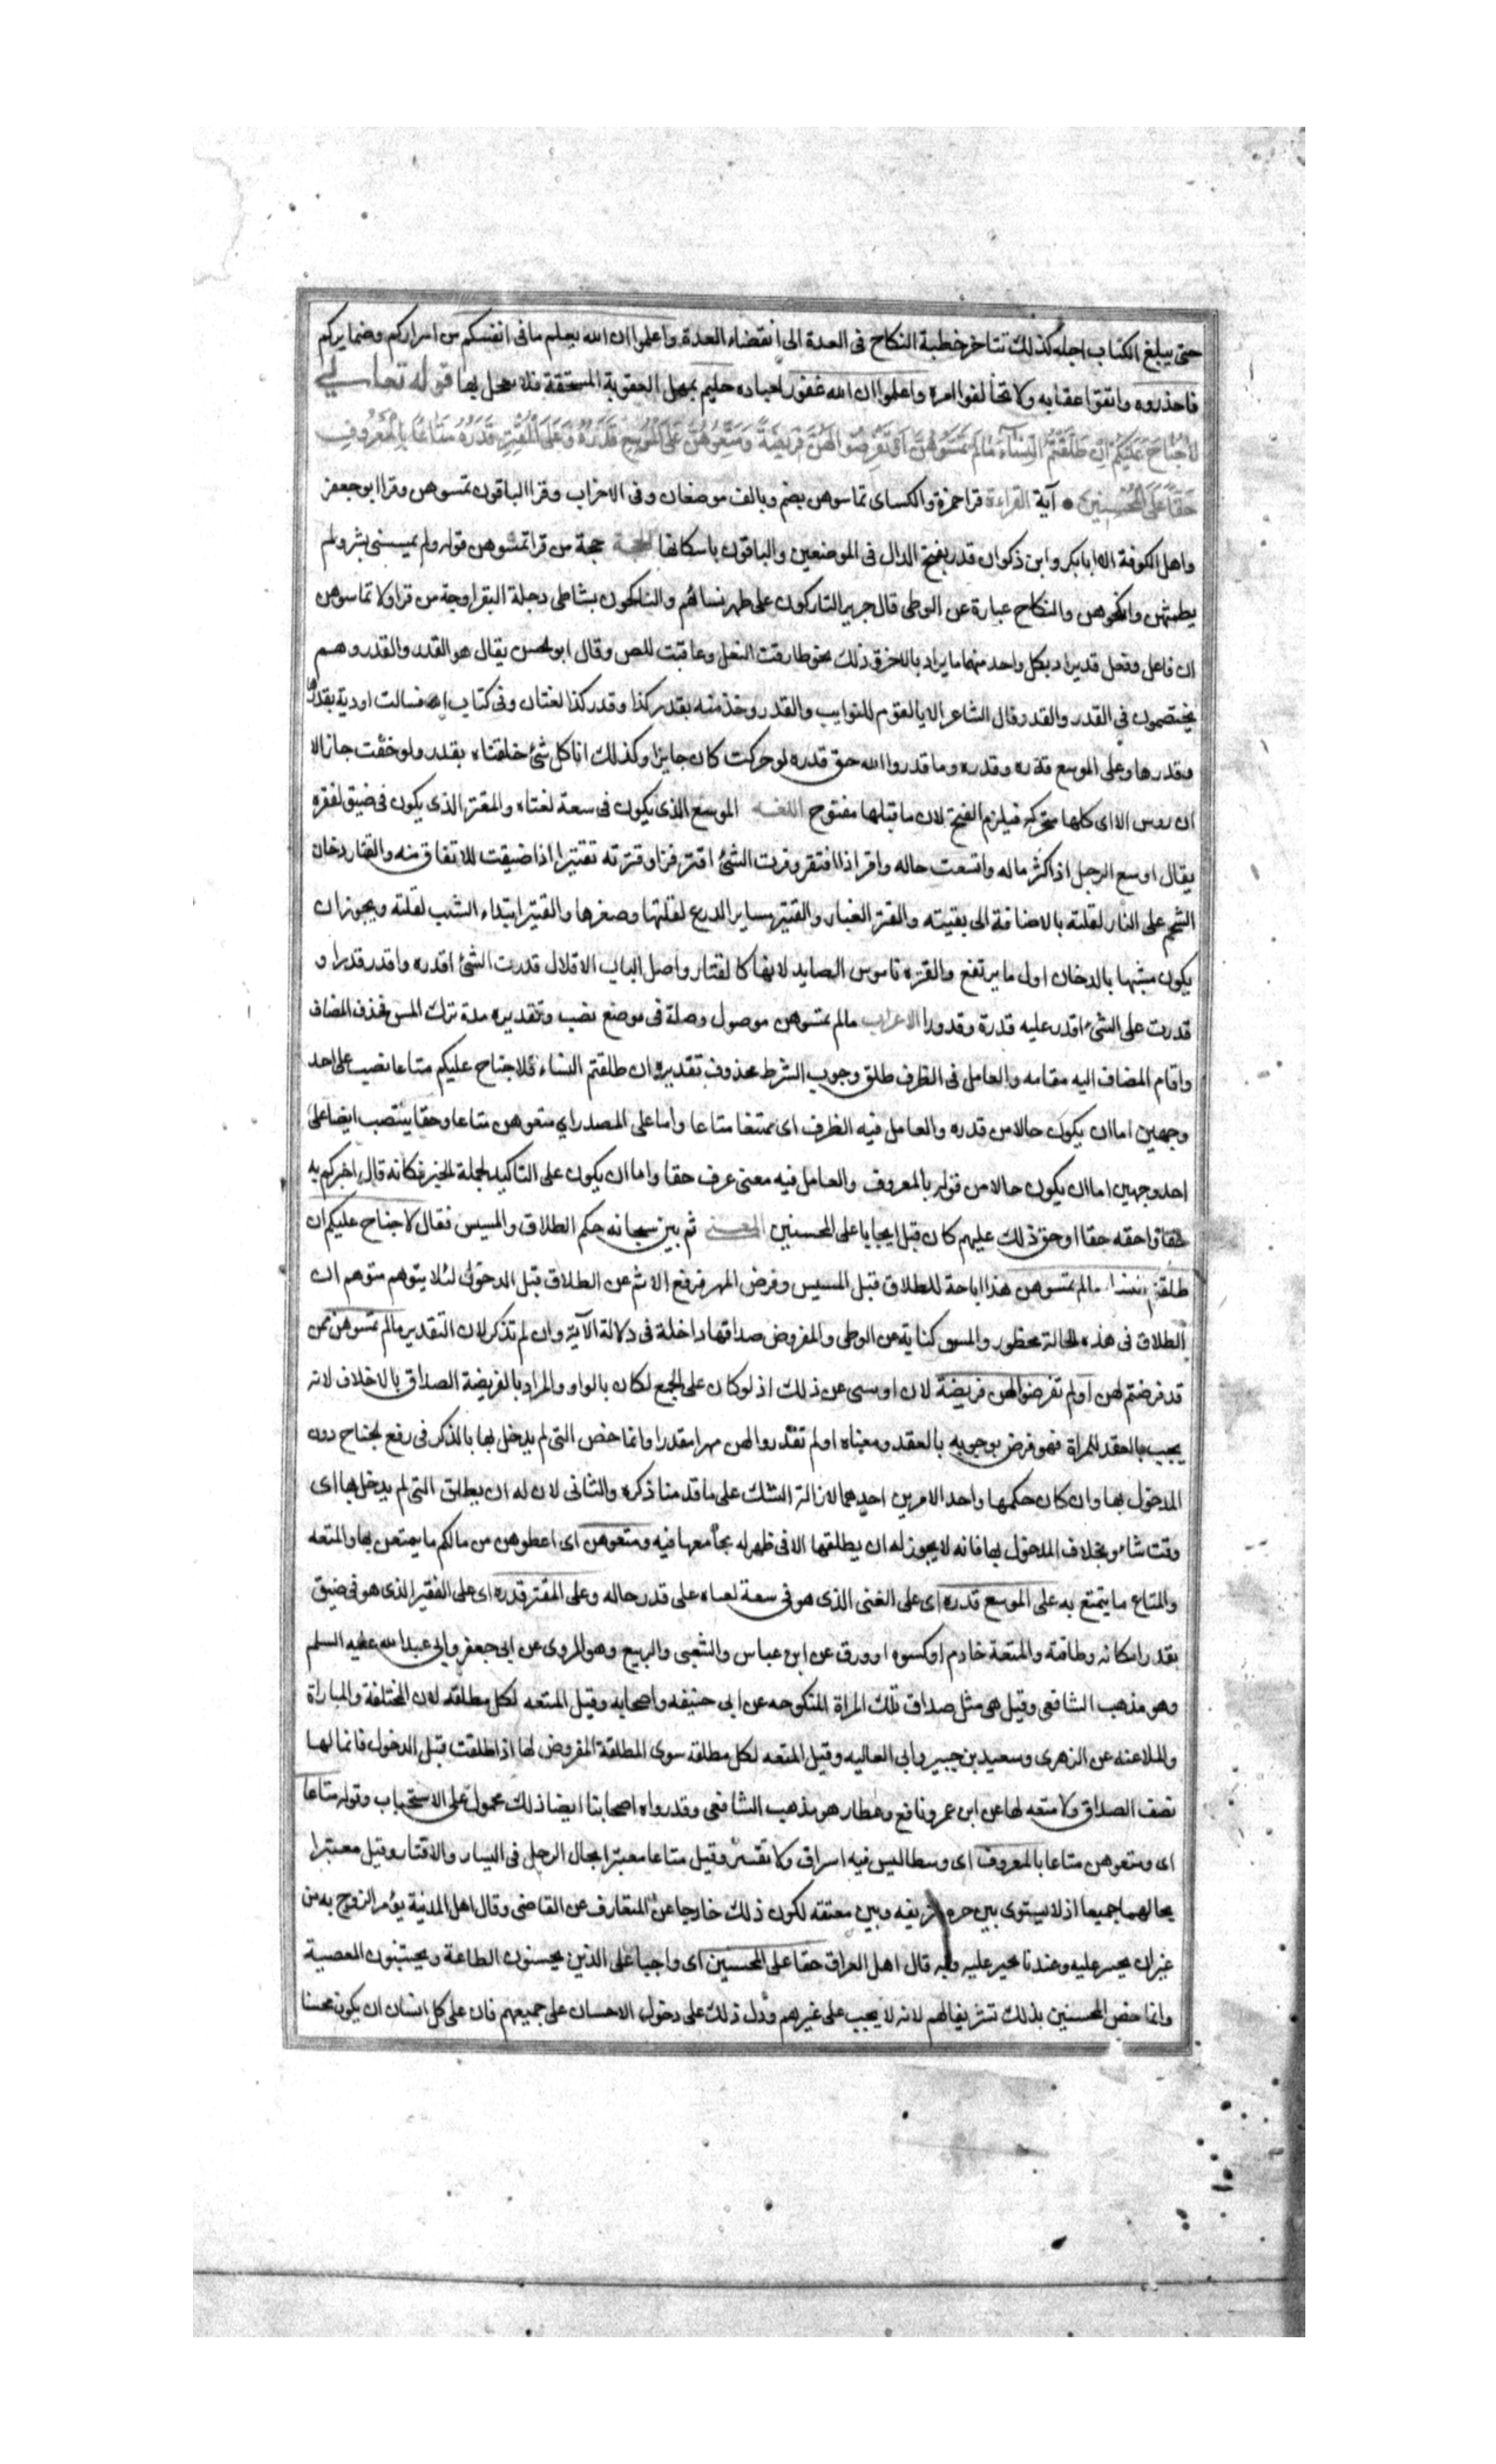 حتى يبلغ الكتاب اجله كذلك تتاخر خطبة النكاح فى العدة الى انقضاء العدة واعلموا ان الله يعلم ما فى انفسكم من اسراركم وضمايركم
فاحذروه واتقوا عقابه ولا تخالفوا امره واعلموا ان الله غفور لعباده حليم يمهل العقوبة المستحقة فلا يعجل بها قوله تعالى
لاَ جُنَاحَ عَلَيْكُمْ اِنْ طَلَّقْتُمُ النِّسَاءَ مَا لَمْ تَمَسُّوهُنَّ اَوْ تَفْرِضُوا لَهُنَّ فَرِيضَةً وَمَتِّعُوهُنَّ عَلَى الْمُوسِعِ قَدَرُهُ وَعَلَى الْمُقْتِرِ قَدَرُهُ مَتَاعًا بِالْمَعْرُوفِ
حَقًّا عَلَى الْمُحْسِنِينَ آية القراءة قرا حمزة والكساى تماسوهن بضم وبالف موضعان وفى الاحزاب وقرا الباقون تمسوهن وقرا ابو جعفر
واهل الكوفة الا ابا بكر وابن ذكوان قدر بفتح الدال فى الموضعين والباقون باسكانها الحجة حجة من قرا تمسوهن قوله ولم يمسسنى بشر ولم
يطمثهن وانكحوهن والنكاح عبارة عن الوطى قال جرير التاركون على طهر نساءهم والناكحون بشاطى دجلة البقرا وجة من قرا ولا تماسوهن
ان فاعل وفعل قد يراد بكل واحد منهما ما يراد بالاخر وذلك نحو طارقت النعل وعاقبت للص وقال ابو الحسن يقال هو القدر والقدر وهم
يختصمون فى القدر والقدر وقال الشاعر الا يا لقوم للنوايب والقدر وخذ منه بقدر كذا وقدر كذا لغتان وفى كتاب الله فسالت اودية بقدرها
وقدرها وعلى الموسع قدره وقدره وما قدروا الله حق قدره لو حركت كان جايزا وكذلك انا كل شئ خلقناه بقدر ولو خففت جاز الا
ان روس الاى كلها متحركه فيلزم الفتح لان ما قبلها مفتوح اللغة الموسع الذى يكون فى سعة لغناه والمقتر الذى يكون فى ضيق لفقره
يقال اوسع الرجل اذا كثر ماله واتسعت حاله واقر اذا افتقر وقترت الشئ اقتر قترا وقترته تقتيرا اذا ضيقت للانفاق منه والقتار دخان
الشحم على النار لقلته بالاضافة الى بقيته والقتر الغبار والقتير مساير الدرع لقلتها وصغرها والقتير ابتداء الشيب لقلته ويجوز ان
يكون مشبها بالدخان اول ما يرتفع والقتره ناموس الصايد لانها كالقتار واصل الباب الاقلال قدرت الشئ اقدره واقدر قدرا و
قدرت على الشئ اقدر عليه قدرة وقدورا الاعراب مالم تمسوهن موصول وصلة فى موضع نصب وتقديره مدة ترك المس فحذف المضاف
واقام المضاف اليه مقامه والعامل فى الظرف طلق وجوب الشرط محذوف تقديره ان طلقتم النساء فلا جناح عليكم متاعا نصب على احد
وجهين اما ان يكون حالا من قدره والعامل فيه الظرف اى ممتعا متاعا واما على المصدر اي متعوهن متاعا وحقا ينتصب ايضا على
احد وجهين اما ان يكون حالا من قوله بالمعروف والعامل فيه معنى عرف حقا واما ان يكون على التاكيد لجملة الخبر فكانه قال اخبركم به
حقا واحقه حقا او حق ذلك عليهم كان قيل ايجابا على المحسنين المعنى ثم بين سبحانه حكم الطلاق والمسيس فقال لا جناح عليكم ان
طلقتم النساء مالم تمسوهن هذا اباحة للطلاق قبل المسيس وفرض المهر فرفع الاثم عن الطلاق قبل الدخول لئلا يتوهم متوهم ان
الطلاق فى هذه الحالة محظور والمس كناية عن الوطى والمفروض صداقها داخلة فى دلالة الآية وان لم تذكر لان التقدير مالم تمسوهن ممن
قد فرضتم لهن او لم تفرضوا لهن فريضة لان او بنى عن ذلك اذ لو كان على الجمع لكان بالواو والمراد بالفريضة الصداق بالاخلاف لانه
يجب بالعقد للمراة فهو فرض بوجوبه بالعقد ومعناه او لم تقدروا لهن مهرا مقدرا وانما خص التى لم يدخل بها بالذكر فى رفع الجناح دون
المدخول بها وان كان حكمها واحد الامرين احدهما لازالة الشك على ما قدمنا ذكره والثانى لان له ان يطلق التى لم يدخل بها اى
وقت شاء وبخلاف المدخول بها فانه لا يجوز له ان يطلقها الا فى طهر لم يجامعها فيه ومتعوهن اى اعطوهن من مالكم ما يتمتعن بها والمتعه
والمتاع ما يتمتع به على الموسع قدره اى على الغنى الذى هو فى سعة لغناه على قدر حاله وعلى المقتر قدره اى على الفقير الذى هو فى ضيق
بقدر امكانه وطاقته والمتعة خادم او كسوه او ورق عن ابن عباس والشعبى والربيع وهو المروى عن ابى جعفر وابى عبد الله عليه السلم
وهو مذهب الشافعى وقيل هى مثل صداق تلك المراة المنكوحه عن ابى حنيفه واصحابه وقيل المتعه لكل مطلقه لان المختلفة والمباراة
والملاعنه عن الزهرى وسعيد بن جبير وابى العاليه وقيل المتعه لكل مطلقه سوى المطلقة المفروض لها اذا طلقت قبل الدخول فانما لها
نصف الصداق ولا متعه لها عن ابن عمر ونافع وعطار هو مذهب الشافعى وقد رواه اصحابنا ايضا ذلك محمول على الاستحباب وقوله متاعا
اى ومتعوهن متاعا بالمعروف اى وسطا ليس فيه اسراف ولا تقتير وقيل متاعا معتبرا بحال الرجل فى اليسار والاقتار وقيل معتبرا
بحالهما جميعا اذ لا يستوى بين حره شريفه وبين معتقه لكون ذلك خارجا عن المتعارف عن القاضى وقال اهل المدنية يؤمر الزوج به من
غير ان يجبر عليه وعندنا يجبر عليه وبه قال اهل العراق حقا على المحسنين اى واجبا على الذين يحسنون الطاعة ويجتنبون المعصية
وانما خص المحسنين بذلك تشريفا لهم لانه لا يجب على غيرهم ودل ذلك على دخول الاحسان على جميعهم فان على كل انسان ان يكون محسنا